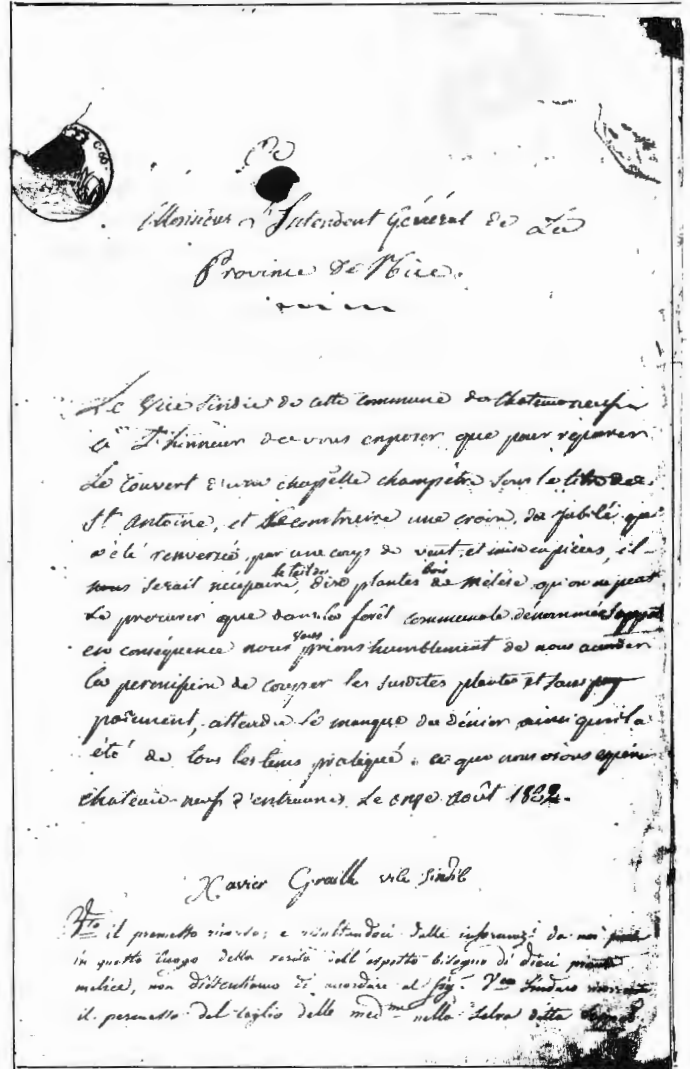 Monsieur l'Intendent Général de La
Province de Nice.
Le Vice Sindic de cette commune de Chateauneuf
a L'honneur de vous exposer que pour réparer
Le Couvert d'une chapelle champêtre sous le titre de
St Antoine, et construire une croix de jubilé que
a été renversée, par une coup de vent, et mise en pièces, il
nous serait necessaire, dix plantes bois de Mélèse qu'on ne peut
se procurer que dans la forêt communale dénommée
en conséquence nous vous prions humblement de nous accorder
la permission de couper les susdites plantes et sans
paiement, attendu le manque de dénier ainsi qu'il a
été de tous les tems pratiqué. ce que nous osons espérer
Chateau-neuf d'entraunes Le onze Août
Xavier Graille vice sindic
Vto il premesso ricorso; e risultandoci dalle da noi
in questo luogo della verità dell'esposto bisogno di dieci piante
melice, non di accordare al Sig.r V.ce Sindaco
il permesso del taglio delle med.me nella Selva detta